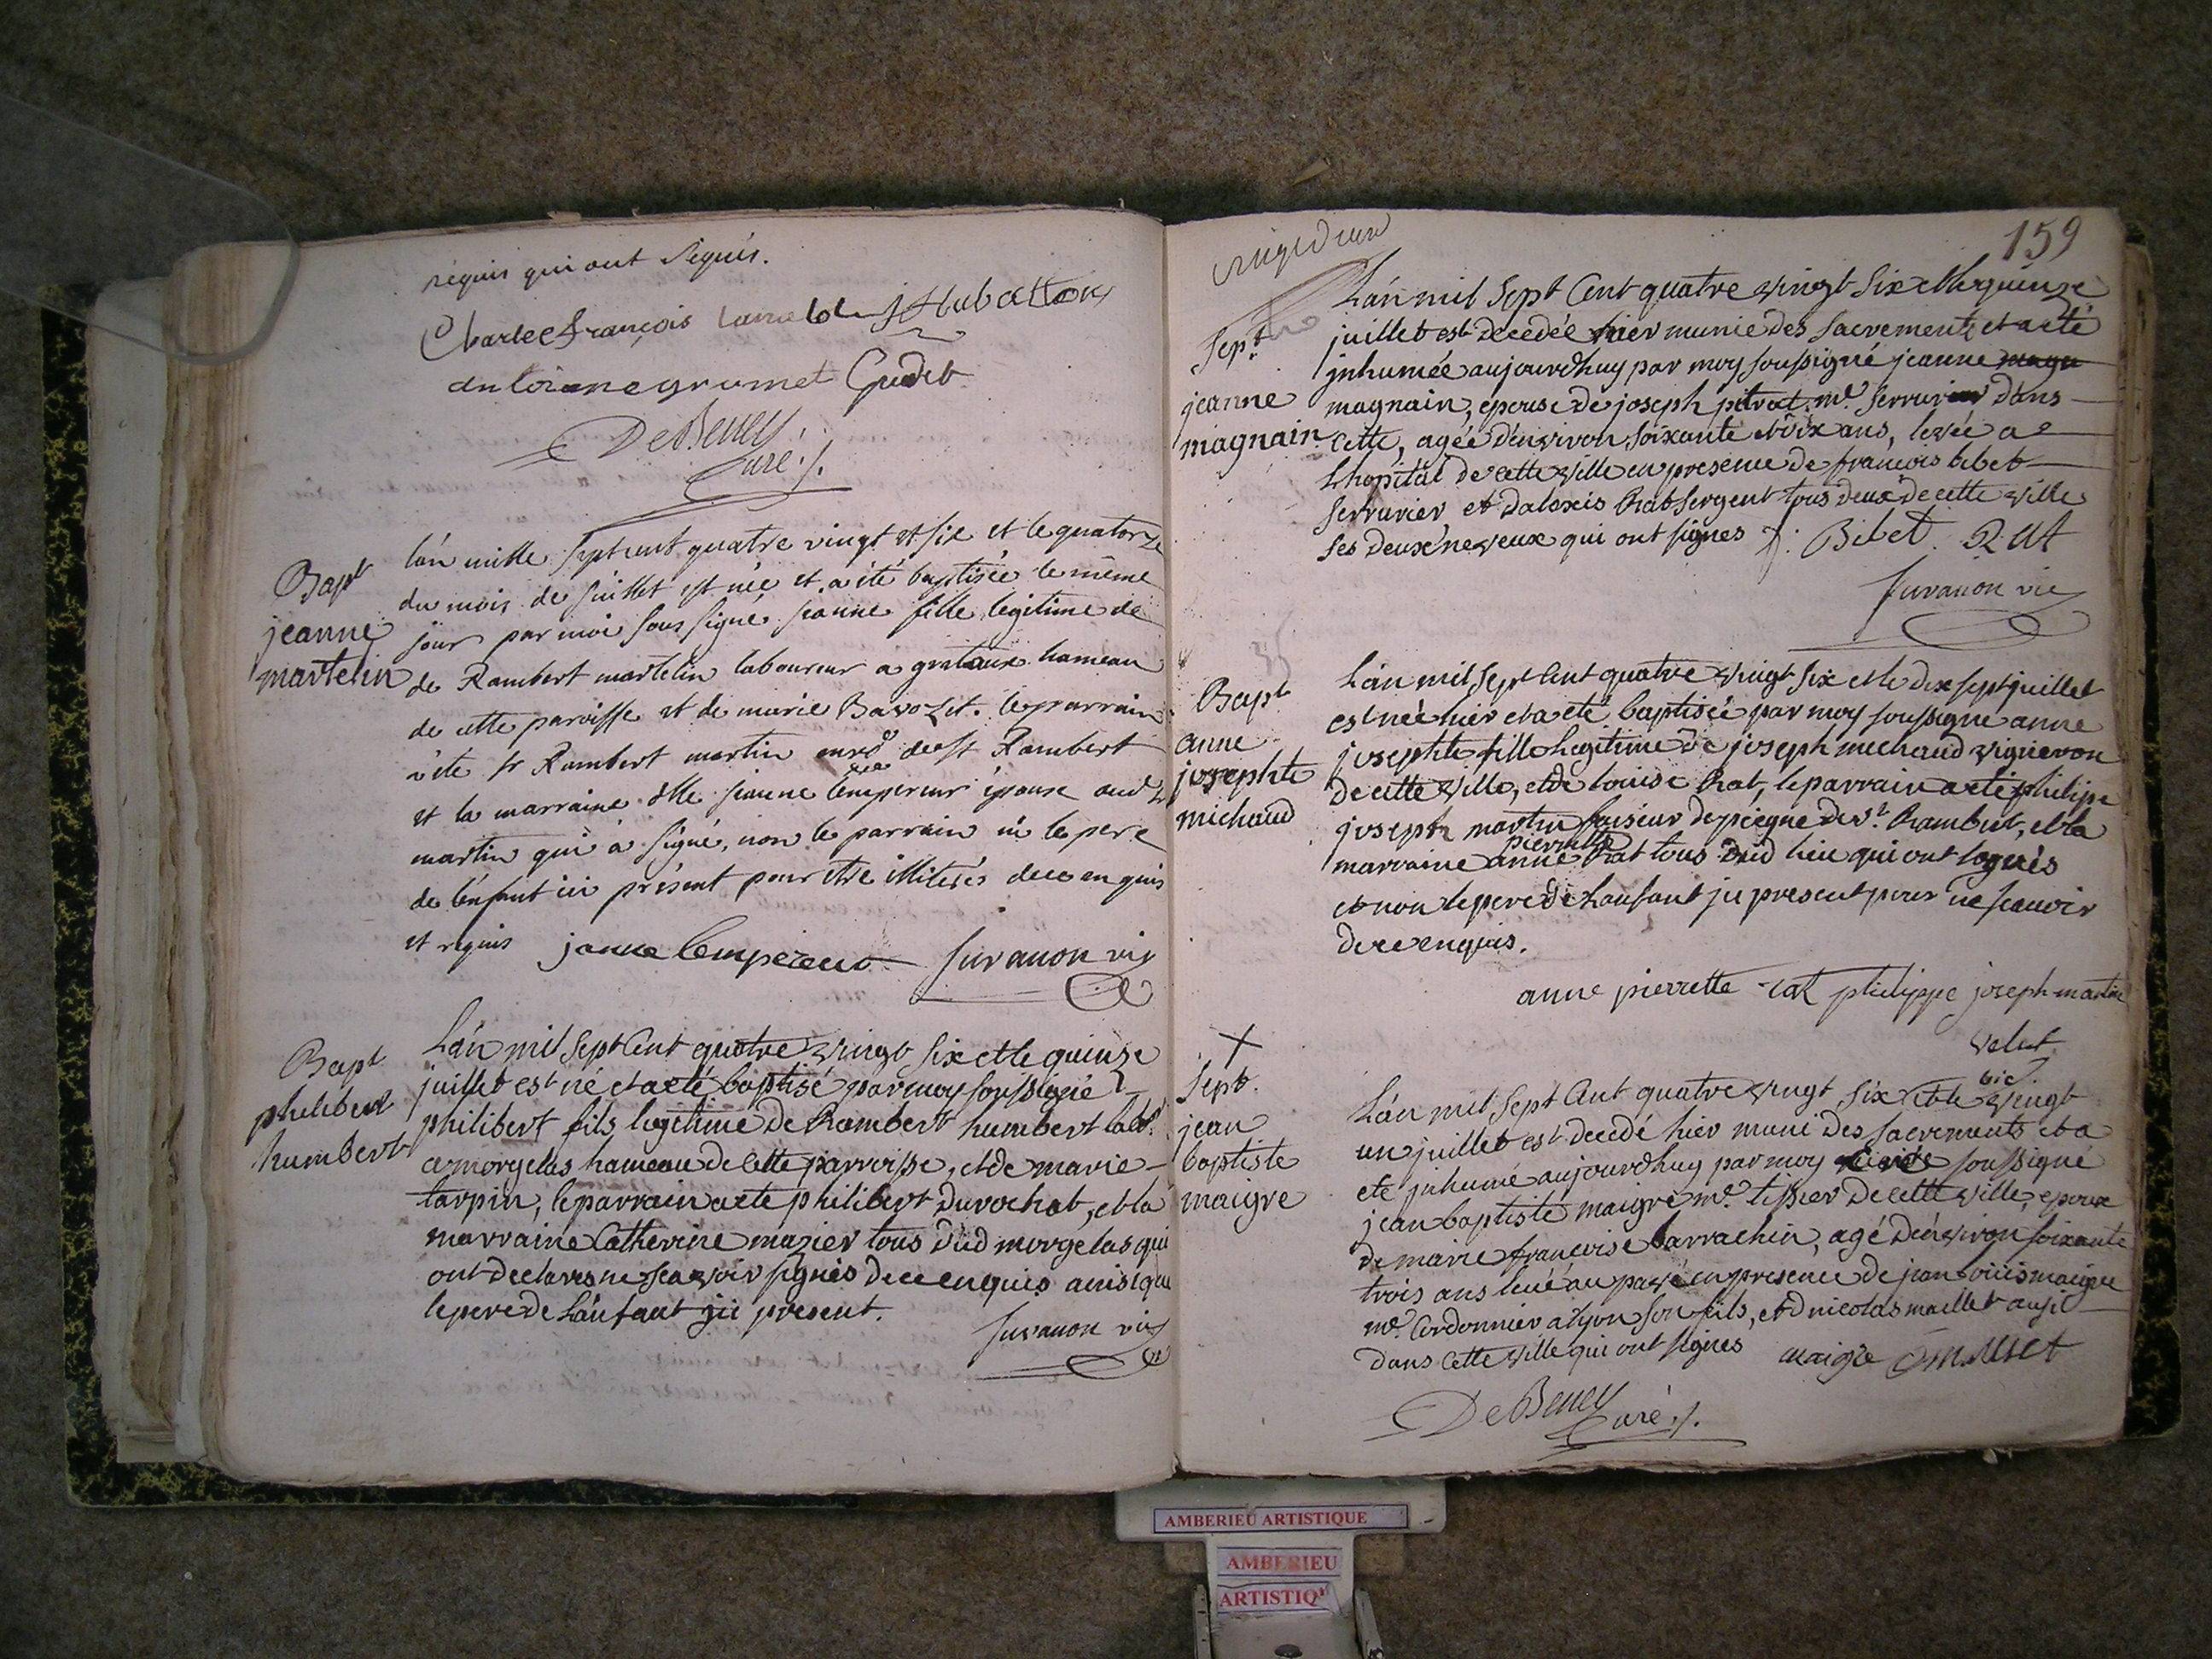 requis qui ont signés.
Charle François J Hubatton
antoinne grumet Gudet
De Beney
Curé ./.
Bapt
jeanne
martelin
lán mille sept cent quatre vingt et six et le quatorze
du mois de juillet est née et a été baptisée le même
jour par moi sous signé jeanne fille legitime de
de Rambert martelin laboureur a grataux hameau
de cette paroisse et de marie Bavozet. le parrain
a été sr Rambert martin de st Rambert
et la marraine dlle jeanne lempereur épouse aud
martin qui à signé, non le parrain ni le pere
de l'enfant ici présent pour être illiterés de ce enquis
et requis janne lempereur Juvanon vic
Bapt
philibert
humbert
Lán mil sept Cent quatre vingt six et le quinze
juillet est né et a eté baptisé par moy soussigné
philibert fils legitime de Rambert humbert labr
a morgelas hameau de cette parroisse, et de marie
tarpin, le parrain a eté philibert durochat, et la
marraine Catherine mazier tous dud morgelas qui
ont declarés ne scavoir signés de ce enquis ainsi que
le pere de Lánfant ici present.
Juvanon vic
159
Sept
jeanne
magnain
Lán mil Sept Cent quatre vingt Six et le quinze
juillet est decedée hier munie des sacrements et a eté
jnhumée aujourdhuy par moy soussigné jeanne magn
magnain, epouse de joseph pitrat me serrurier dans
cette, agée dénviron soixante et dix ans, levée a
Lhopital de cette ville en presence de francois bibet
serrurier et dalexis Rat sergent tous deux de cette ville
ses deux neveux qui ont signés f: Bibet Rat
Juvanon vic
Bapt
anne
josephte
michaud
Lán mil sept Cent quatre vingt six et le dix sept juillet
est née hier et a eté baptisée par moy soussigné anne
josephte fille legitime de joseph michaud vigneron
de cette ville, et de louise Rat, le parrain a eté philipe
joseph martin faiseur de piegne de st. Rambert, et la
pierrette
marraine anne Rat tous dud lieu qui ont signés
et non le pere de Lanfant jci present pour ne scavoir
de ce enquis.
anne pierrette rat philippe joseph martin
velut
vic.
Sept.
jean
baptiste
maigre
Lán mil sept Cent quatre vingt six et le vingt
un juillet est decedé hier muni des sacrements et a
eté jnhumé aujourdhuy par moy soussigné
jean baptiste maigre me tissier de cette ville, epoux
de marie francoise barrachin, agé dénviron soixante
trois ans levé au pavé en presence de jean louis maigre
me Cordonnier a lyon son fils, et d nicolas maillet aussi
dans cette ville qui ont signés maigre maillet
De Beney
Curé ./.
AMBERIEU ARTISTIQUE
AMBERIEU
ARTISTIQ